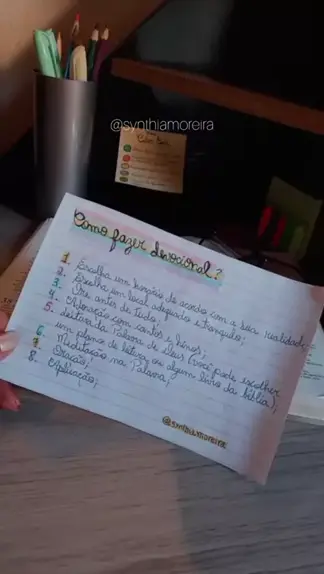 @synthiamoreira
Como fazer devocional?
1. Escolha um horário de acordo com a sua realidade;
2. Escolha um local adequado e tranquilo;
3. Ore antes de tudo;
4. Adoração com cantos e hinos;
5. Leitura da Palavra de Deus (você pode escolher
um plano de leitura ou algum livro da bíblia);
6. Meditação na Palavra;
7. Oração;
8. Aplicação;
@synthiamoreira